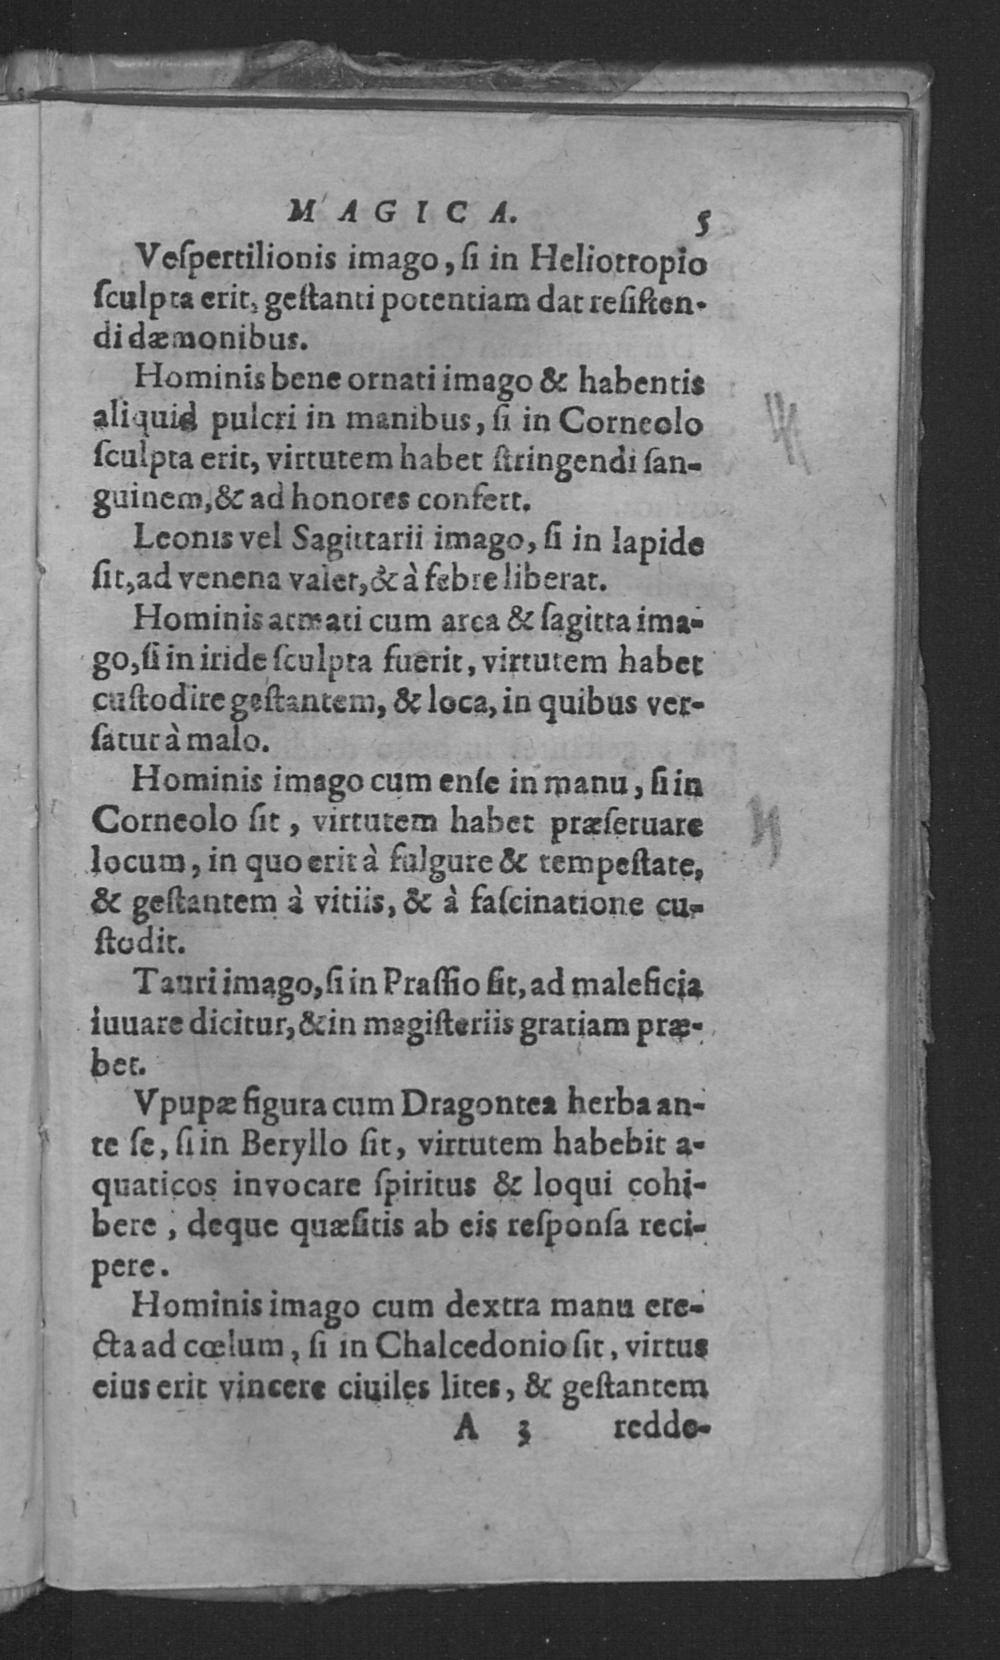 MAGICA. 5
Veſpertilionis imago, ſi in Heliotropio
ſculpta erit, geſtanti potentiam dat reſiſten-
di dæmonibus.
Hominis bene ornati imago & habentis
aliquid pulcri in manibus, ſi in Corneolo
ſculpta erit, virtutem habet ſtringendi ſan-
guinem, & ad honores confert.
Leonis vel Sagittarii imago, ſi in lapide
ſit, ad venena valet, & à febre liberat.
Hominis armati cum arca & ſagitta ima-
go, ſi in iride ſculpta fuerit, virtutem habet
cuſtodire geſtantem, & loca, in quibus ver-
ſatur à malo.
Hominis imago cum enſe in manu, ſi in
Corneolo ſit, virtutem habet præſeruare
locum, in quo erit à fulgure & tempeſtate,
& geſtantem à vitiis, & à faſcinatione cu-
ſtodit.
Tauri imago, ſi in Praſſio ſit, ad maleficia
iuuare dicitur, & in magiſteriis gratiam præ-
bet.
Vpupæ figura cum Dragontea herba an-
te ſe, ſi in Beryllo ſit, virtutem habebit a-
quaticos invocare ſpiritus & loqui cohi-
bere, deque quæſitis ab eis reſponſa reci-
pere.
Hominis imago cum dextra manu ere-
cta ad cœlum, ſi in Chalcedonio ſit, virtus
eius erit vincere ciuiles lites, & geſtantem
A 3 redde-